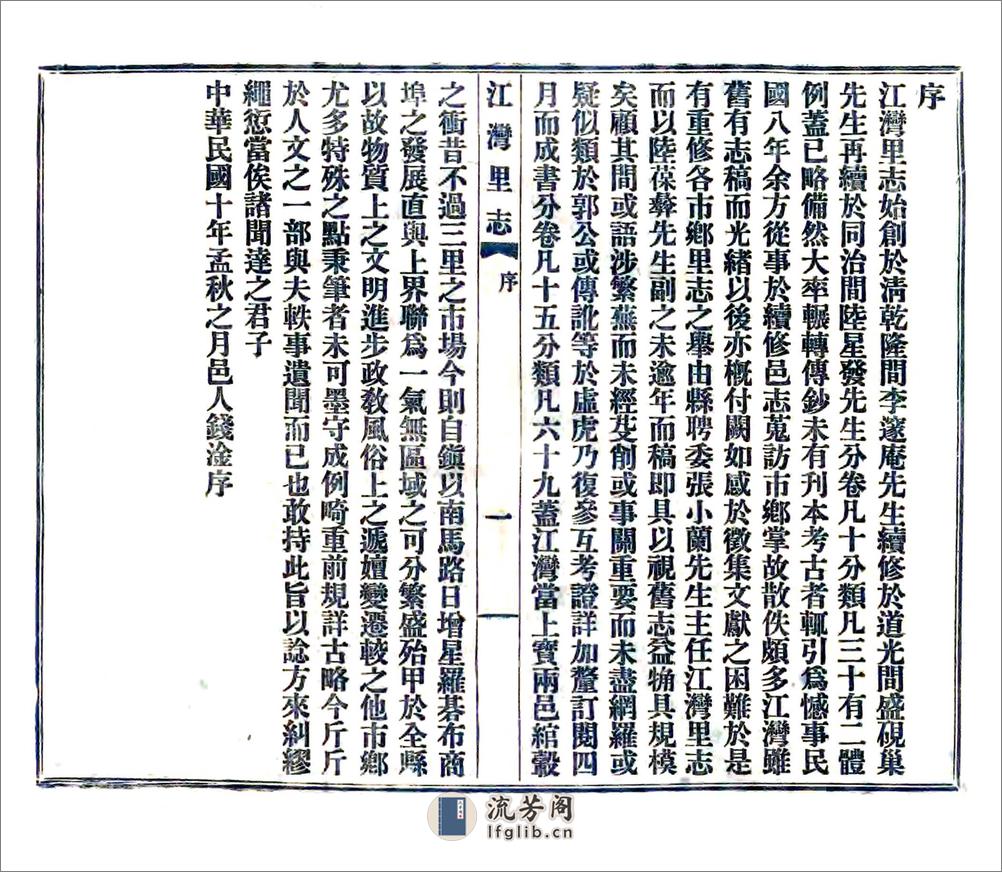 序
江灣里志始創於清乾隆間李邃庵先生續修於道光間盛硯巢
先生再續於同治間陸星發先生分卷凡十分類凡三十有二體
例蓋已略備然大率輾轉傳鈔未有刊本考古者輒引爲憾事民
國八年余方從事於續修邑志蒐訪市鄉掌故散佚頗多江灣雖
舊有志稿而光緒以後亦槪付闕如感於徵集文獻之困難於是
有重修各市鄉里志之舉由縣聘委張小蘭先生主任江灣里志
而以陸葆彝先生副之未逾年而稿即具以視舊志益犕具規模
矣顧其間或語涉繁蕪而未經芟削或事關重要而未盡網羅或
疑似類於郭公或傳訛等於虛虎乃復參互考證詳加釐訂閱四
月而成書分卷凡十五分類凡六十九蓋江灣當上寶兩邑綰轂
江灣里志
序
一
之衝昔不過三里之市場今則自鎭以南馬路日增星羅碁布商
埠之發展直與上界聯爲一氣無區域之可分繁盛殆甲於全縣
以故物質上之文明進步政敎風俗上之遞嬗變遷較之他市鄉
尤多特殊之點秉筆者未可墨守成例畸重前規詳古略今斤斤
於人文之一部與夫軼事遺聞而已也敢持此旨以諗方來糾繆
繩愆當俟諸聞達之君子
中華民國十年孟秋之月邑人錢淦序
流芳阁
lfglib.cn